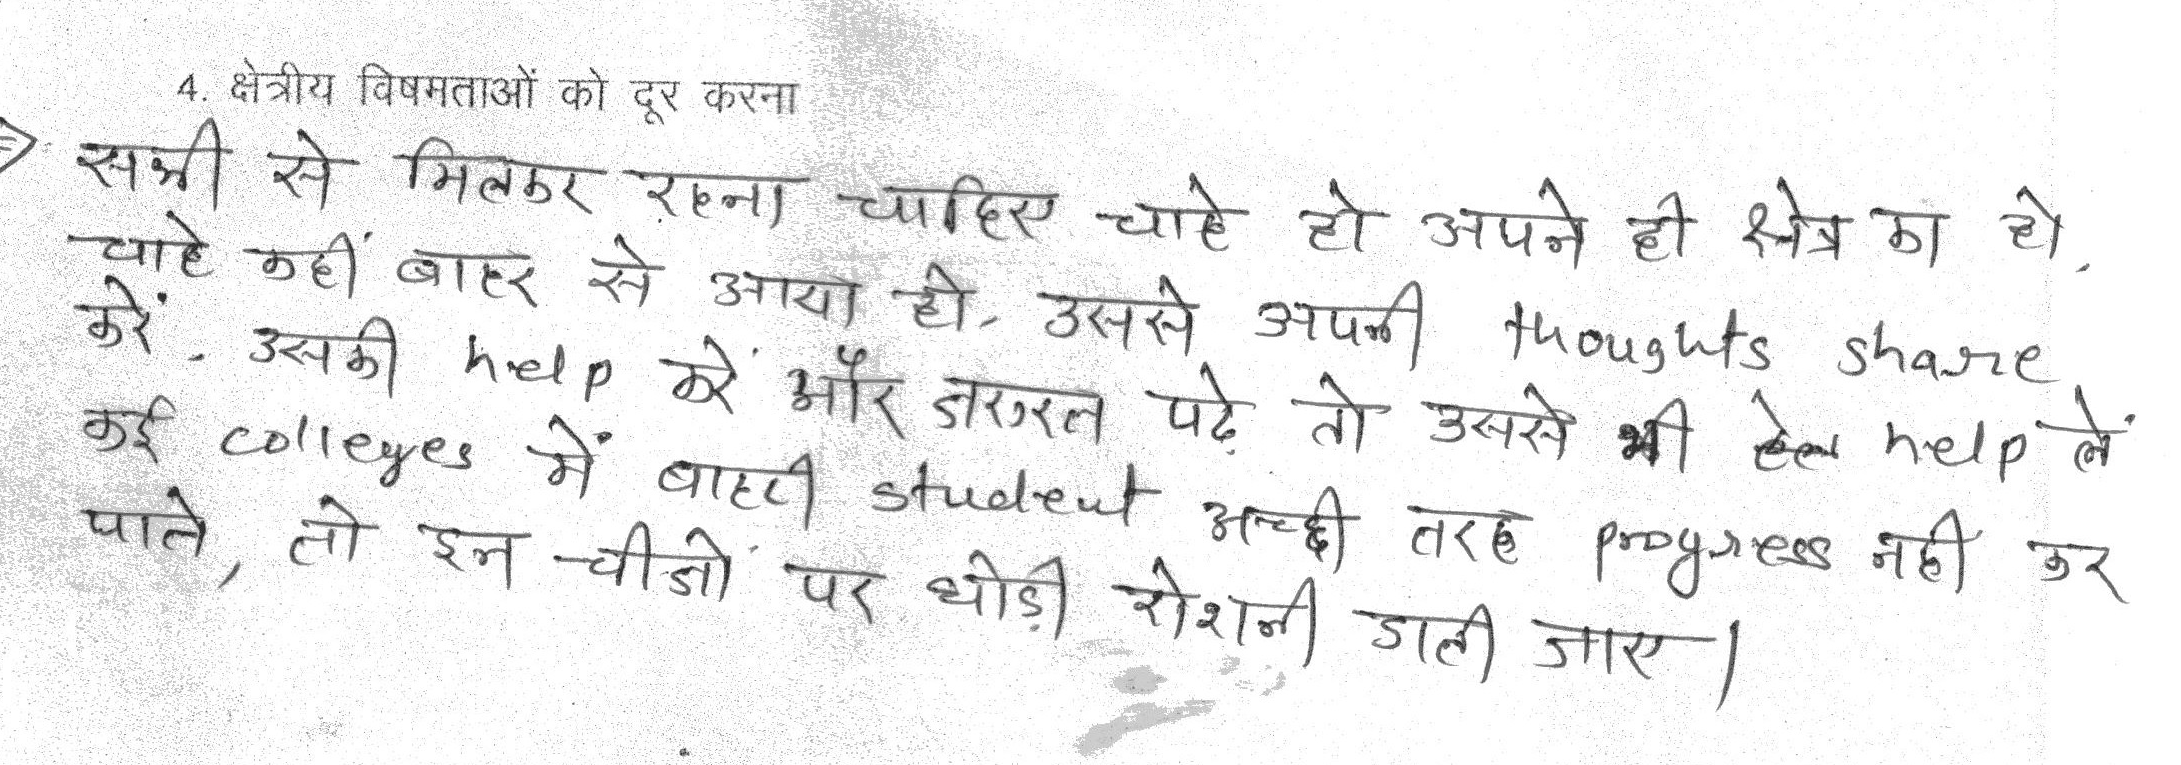 4. क्षेत्रीय विषमताओं को दूर करना
सभी से मिलकर रहना चाहिए चाहे हो अपने ही क्षेत्र का हो,
चाहे कहीं बाहर से आया हो, उससे अपनी thoughts share
करें, उसकी help करें और जरुरत पढ़े तो उससे भी help लें
कई colleges में बाहरी student अच्छी तरह progress नहीं कर
पाते, तो इन चीजों पर थोड़ी रोशनी डाली जाए।